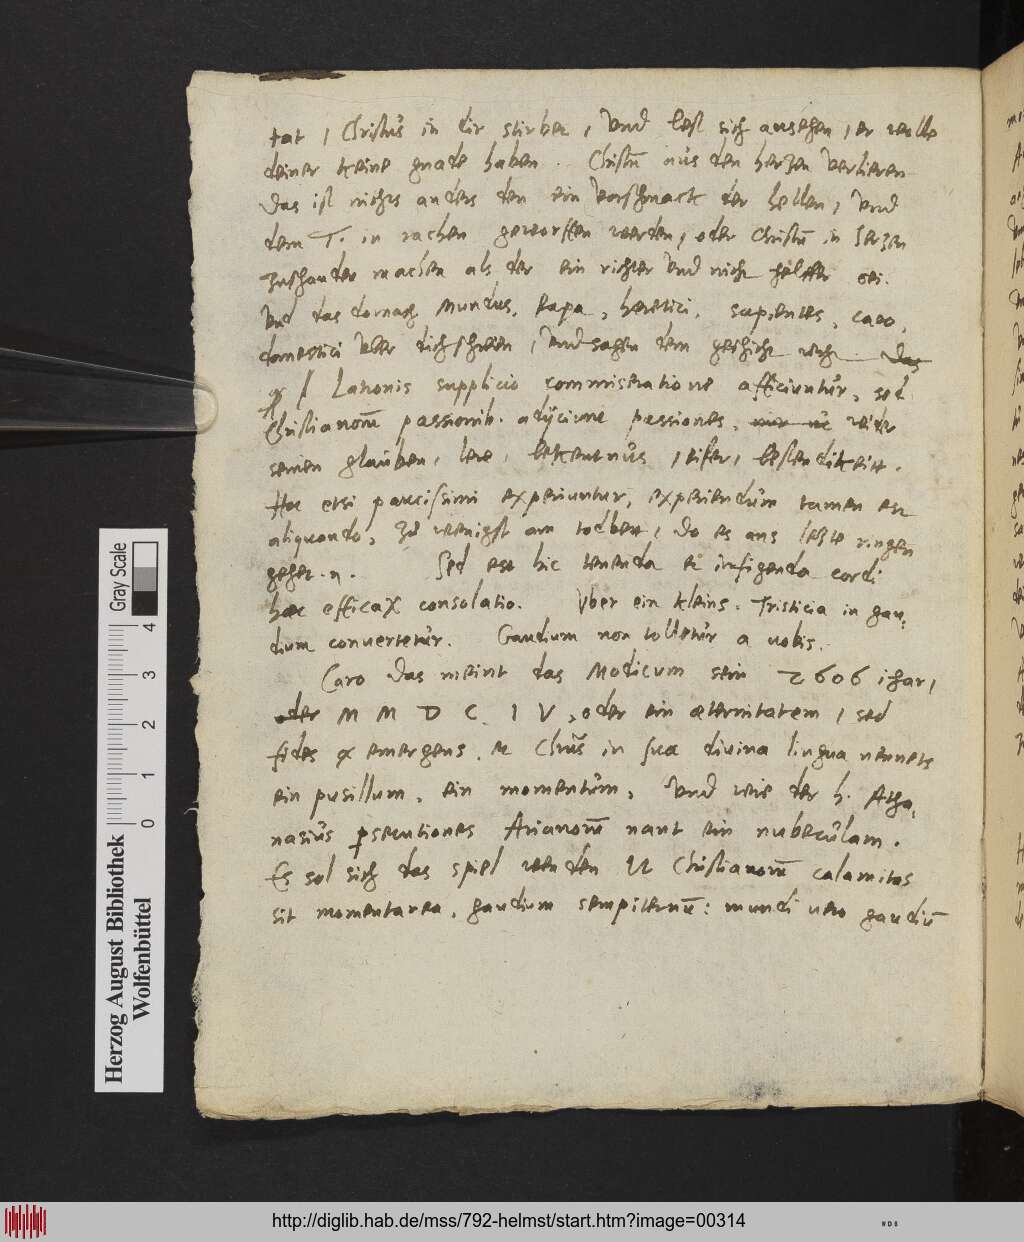 tat / Christus in dir stirbet, Vnd lest sich ansehen, er wolle
deiner keine gnade haben. Christum aus den herzen verlieren
Das ist nichts anders den ein Vorschmack der hellen, Vnd
dem T. in rachen geworffen werden, oder Christum in herzen
zuschanden machen als der ein richter Vnd nicht helffer sei.
Vnd das dornach Mundus, Papa, heretici, sapientes, caro,
domestici Vber dich schreien, Vnd sagen dem geschicht recht das
Latronis supplicio commiseratione afficiuntur, sed
Christianorum passionib. adijciunt passiones, wider
seinen glauben, lere, bekentnus, eifer, bestendikeitt.
Hoc etsi paucissimi experiuntur, experiendum tamen est
aliquando, Zu wenigst am todbett, do es ans letzte ringen
gehet. Sed est hic tenenda et infigenda cordi
haec efficax consolatio. Vber ein kleins. Tristicia in gau-
dium convertetur. Gaudium non tolletur a vobis.
Caro Das meint das Modicum sein 2606 ihar,
oder M M D C I V, oder ein æternitatem, sed
fides emergens, et Christus in sua diuina lingua nennets
ein pusillum, ein momentum, Vnd wie der h. Atha-
nasius persecutiones Arianorum nant ein nubeculam.
Es sol sich das spiel wenden Vt Christianorum calamitas
sit momentanea, gaudium sempiternum: mundi vero gaudium
Herzog August Bibliothek
Wolfenbüttel
Gray Scale
0 1 2 3 4
http://diglib.hab.de/mss/792-helmst/start.htm?image=00314